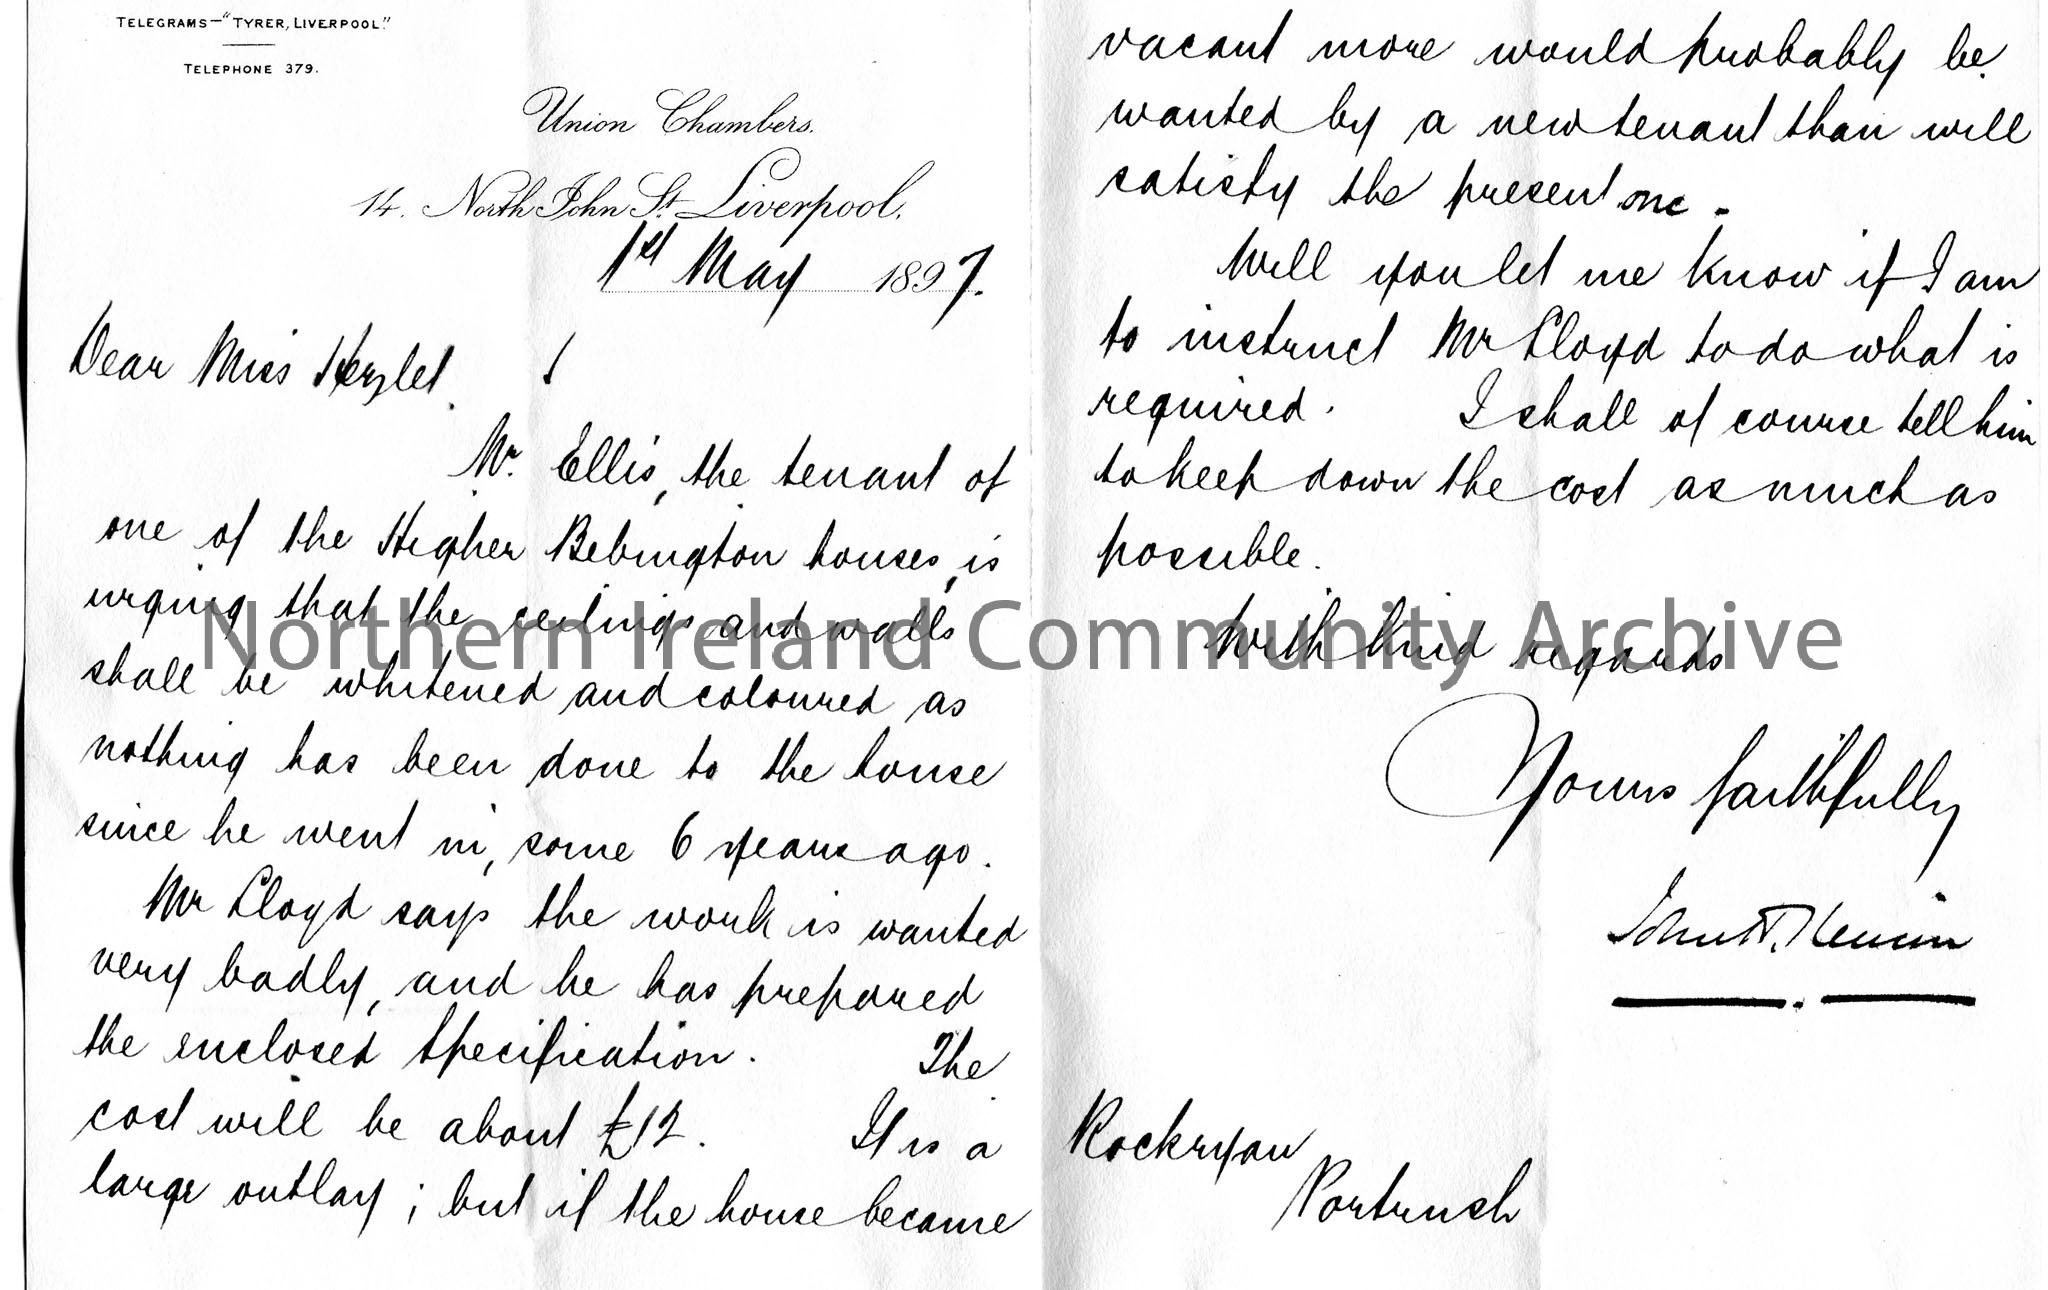 TELEGRAMS—"TYRER, LIVERPOOL."
TELEPHONE 379.
Union Chambers.
14. North John St. Liverpool.
1st May 1897.
Dear Miss Hezlet
Mr. Ellis, the tenant of
one of the Higher Bebington houses, is
urging that the ceilings and walls
shall be whitened and coloured as
nothing has been done to the house
since he went in, some 6 years ago.
Mr Lloyd says the work is wanted
very badly, and he has prepared
the enclosed specification. The
cost will be about £12. It is a
large outlay; but if the house became
vacant more would probably be
wanted by a new tenant than will
satisfy the present one.
Will you let me know if I am
to instruct Mr Lloyd to do what is
required. I shall of course tell him
to keep down the cost as much as
possible.
With kind regards
Yours faithfully
John
Rockryan
Portrush
Northern Ireland Community Archive